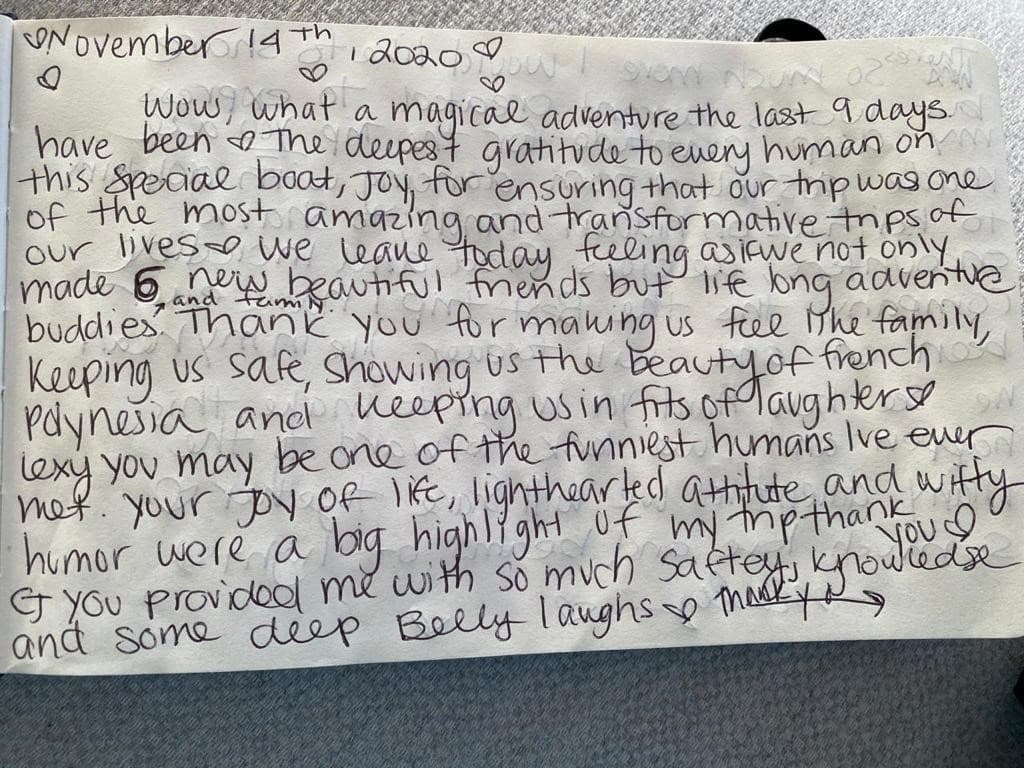 ♡November 14th, 2020♡
♡ ♡ ♡
Wow, what a magical adventure the last 9 days.
have been ♡ The deepest gratitude to every human on
this special boat, Joy, for ensuring that our trip was one
of the most amazing and transformative trips of
our lives♡ We leave today feeling as if we not only
made 6 new beautiful friends but life long adventure
and family
buddies. Thank you for making us feel like family,
Keeping us safe, showing us the beauty of french
polynesia and keeping us in fits of laughter♡
lexy you may be one of the funniest humans Ive ever
met. your joy of life, lighthearted attitute and witty
humor were a big highlight of my trip thank
you♡
CJ you provided me with so much saftey, knowledse
and some deep Belly laughs ♡ Thank you →